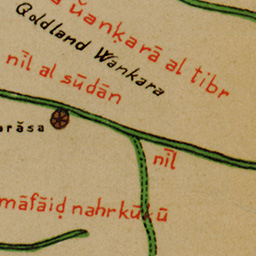 ŭanḳarā al tibr
Goldland Wankara
nīl al sūdān
arāsa
nīl
māfāiḍ nahr kūkū